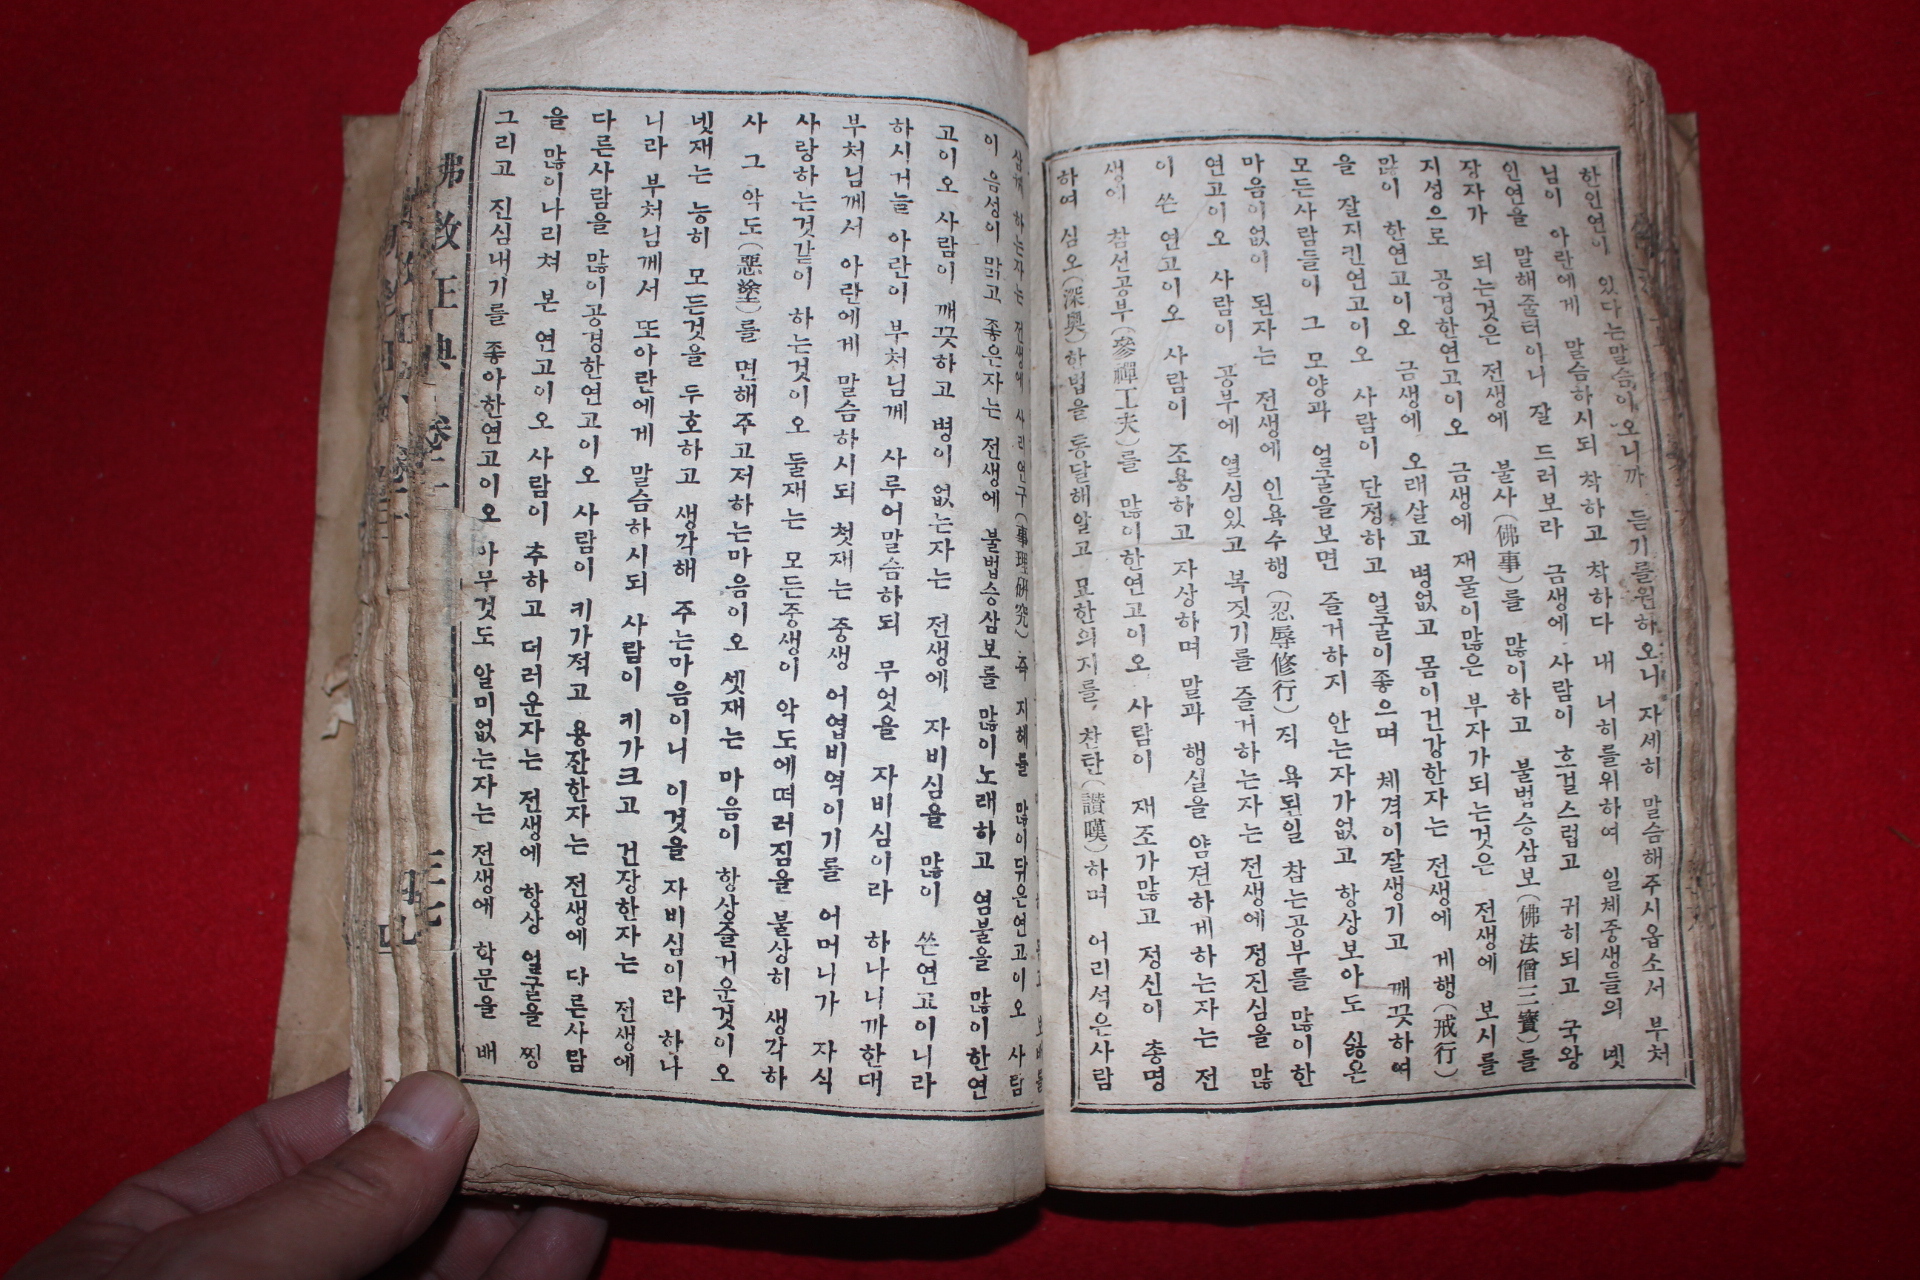 한인연이 있다는말슴이오니까 듣기를원하오니 자세히 말슴해주시옵소서 부처
님이 아란에게 말슴하시되 착하고 착하다 내 너히를위하여 일체중생들의 몟
인연을 말해줄터이니 잘 드러보라 금생에 사람이 흐걸스럽고 귀히되고 국왕
장자가 되는것은 전생에 불사(佛事)를 많이하고 불법승삼보(佛法僧三寶)를
지성으로 공경한연고이오 금생에 재물이많은 부자가되는것은 전생에 보시를
많이 한연고이오 금생에 오래살고 병없고 몸이건강한자는 전생에 계행(戒行)
을 잘지킨연고이오 사람이 단정하고 얼굴이좋으며 체격이잘생기고 깨끗하여
모든사람들이 그 모양과 얼굴을보면 즐거하지 안는자가없고 항상보아도 싫은
마음이없이 된자는 전생에 인욕수행(忍辱修行)직 욕된일 참는공부를 많이한
연고이오 사람이 공부에 열심있고 복짓기를 즐거하는자는전생에 정진심을 많
이 쓴 연고이오 사람이 조용하고 자상하며 말과 행실을 얌젼하게하는자는 전
생에 참선공부(參禪工夫)를 많이한연고이오 사람이 재조가많고 정신이 총명
하여 심오(深奧)하법을 통달해알고 묘한의지를 찬탄(讃嘆)하며 어리석은사람
삼께 하는자는 전생에 사리연구(事理硏究) 즉 지혜를 많이닦은연고이오 사람
이 음성이 맑고 좋은자는 전생에 불법승삼보를 많이노래하고 염불을 많이한연
고이오 사람이 깨끗하고 병이 없는자는 전생에 자비심을 많이 쓴연고이니라
하시거늘 아란이 부처님께 사루어말슴하되 무엇을 자비심이라 하나니까한대
부처님께서 아란에게 말슴하시되 첫재는 중생 어엽비역이기를 어머니가 자식
사랑하는것같이 하는것이오 둘재는 모든중생이 악도에떠러짐을 불상히 생각하
사 그 악도(惡塗)를 면해주고저하는마음이오 셋재는 마음이 항상즐거운것이오
넷재는 능히 모든것을 두호하고 생각해 주는마음이니 이것을 자비심이라 하나
니라 부처님께서 또아란에게 말슴하시되 사람이 키가크고 건장한자는 전생에
다른사람을 많이공경한연고이오 사람이 키가적고 용잔한자는 전생에 다른사람
을 많이나리쳐 본 연고이오 사람이 추하고 더러운자는 전생에 항상 얼굴을 찡
그리고 진심내기를 좋아한연고이오 아무것도 알미없는자는 전생에 학문을 배
佛敎正典 卷二
三七